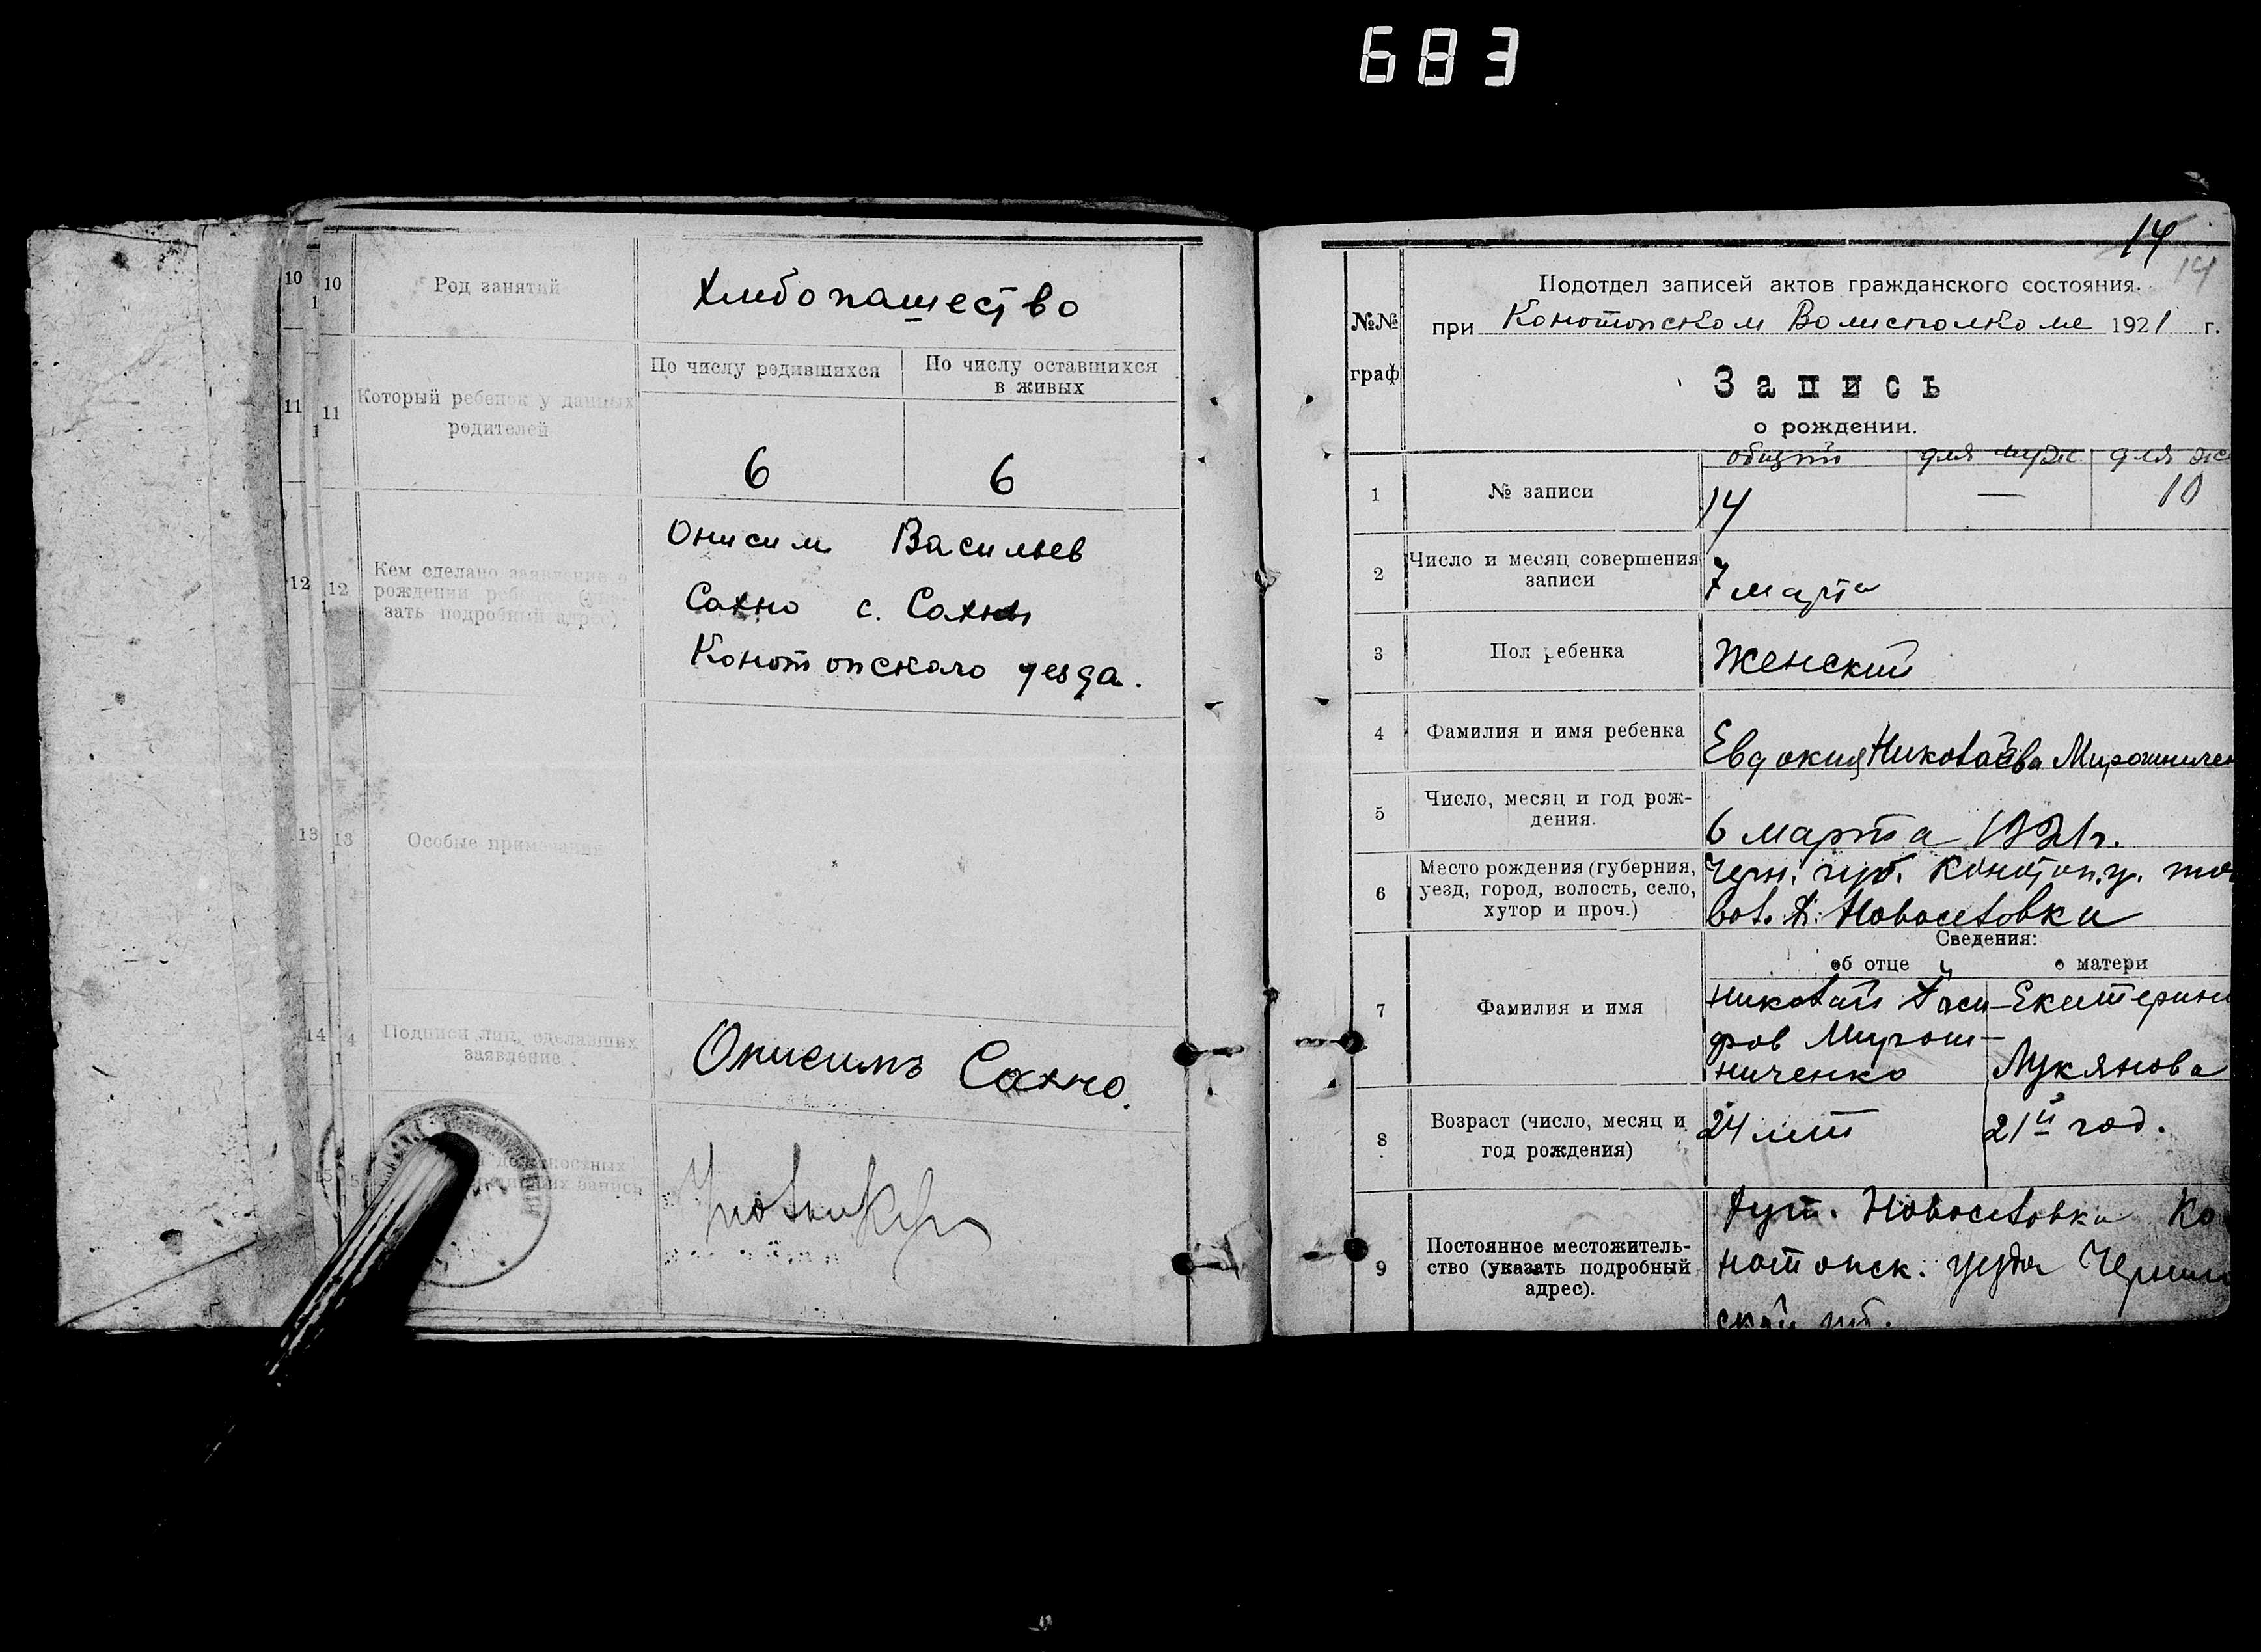 683
10
10
Род занятий
Хлибопашество
11
11
Который ребенок у данных
родителей
По числу родившихся
По числу оставшихся
в живых
6
6
12
12
Кем сделано заявление о
рождении
зать подробный адрес)
Онисим Васильев
Сахно с. Сахны
Конотопского уезда.
13
13
Особые примечания
14
Подписи лиц, сделавших
заявление
Онисимъ Сахно.
запись
14
14
№№
граф
Подотдел записей актов гражданского состояния.
при Конотопском Волисполкоме 1921 г.
Запись
о рождении.
1
№ записи
общий
для муж.
для же
14
—
10
2
Число и месяц совершения
записи
7 марта
3
Пол ребенка
Женский
4
Фамилия и имя ребенка
Евдокия Николаева Мирошничен
5
Число, месяц и год рож-
дения.
6 марта 1921 г.
6
Место рождения (губерния,
уезд, город, волость, село,
хутор и проч.)
Черн. губ. Конотоп. у.
вол. х. Новоселовки
Сведения:
об отце
о матери
7
Фамилия и имя
Николай
ров Мирош-
ниченко
Екатерина
Лукянова
8
Возраст (число, месяц и
год рождения)
24 лет
21й год.
9
Постоянное местожитель-
ство (указать подробный
адрес).
хут. Новоселовка Ко
нотопск. уезда Чернигов
ской губ.